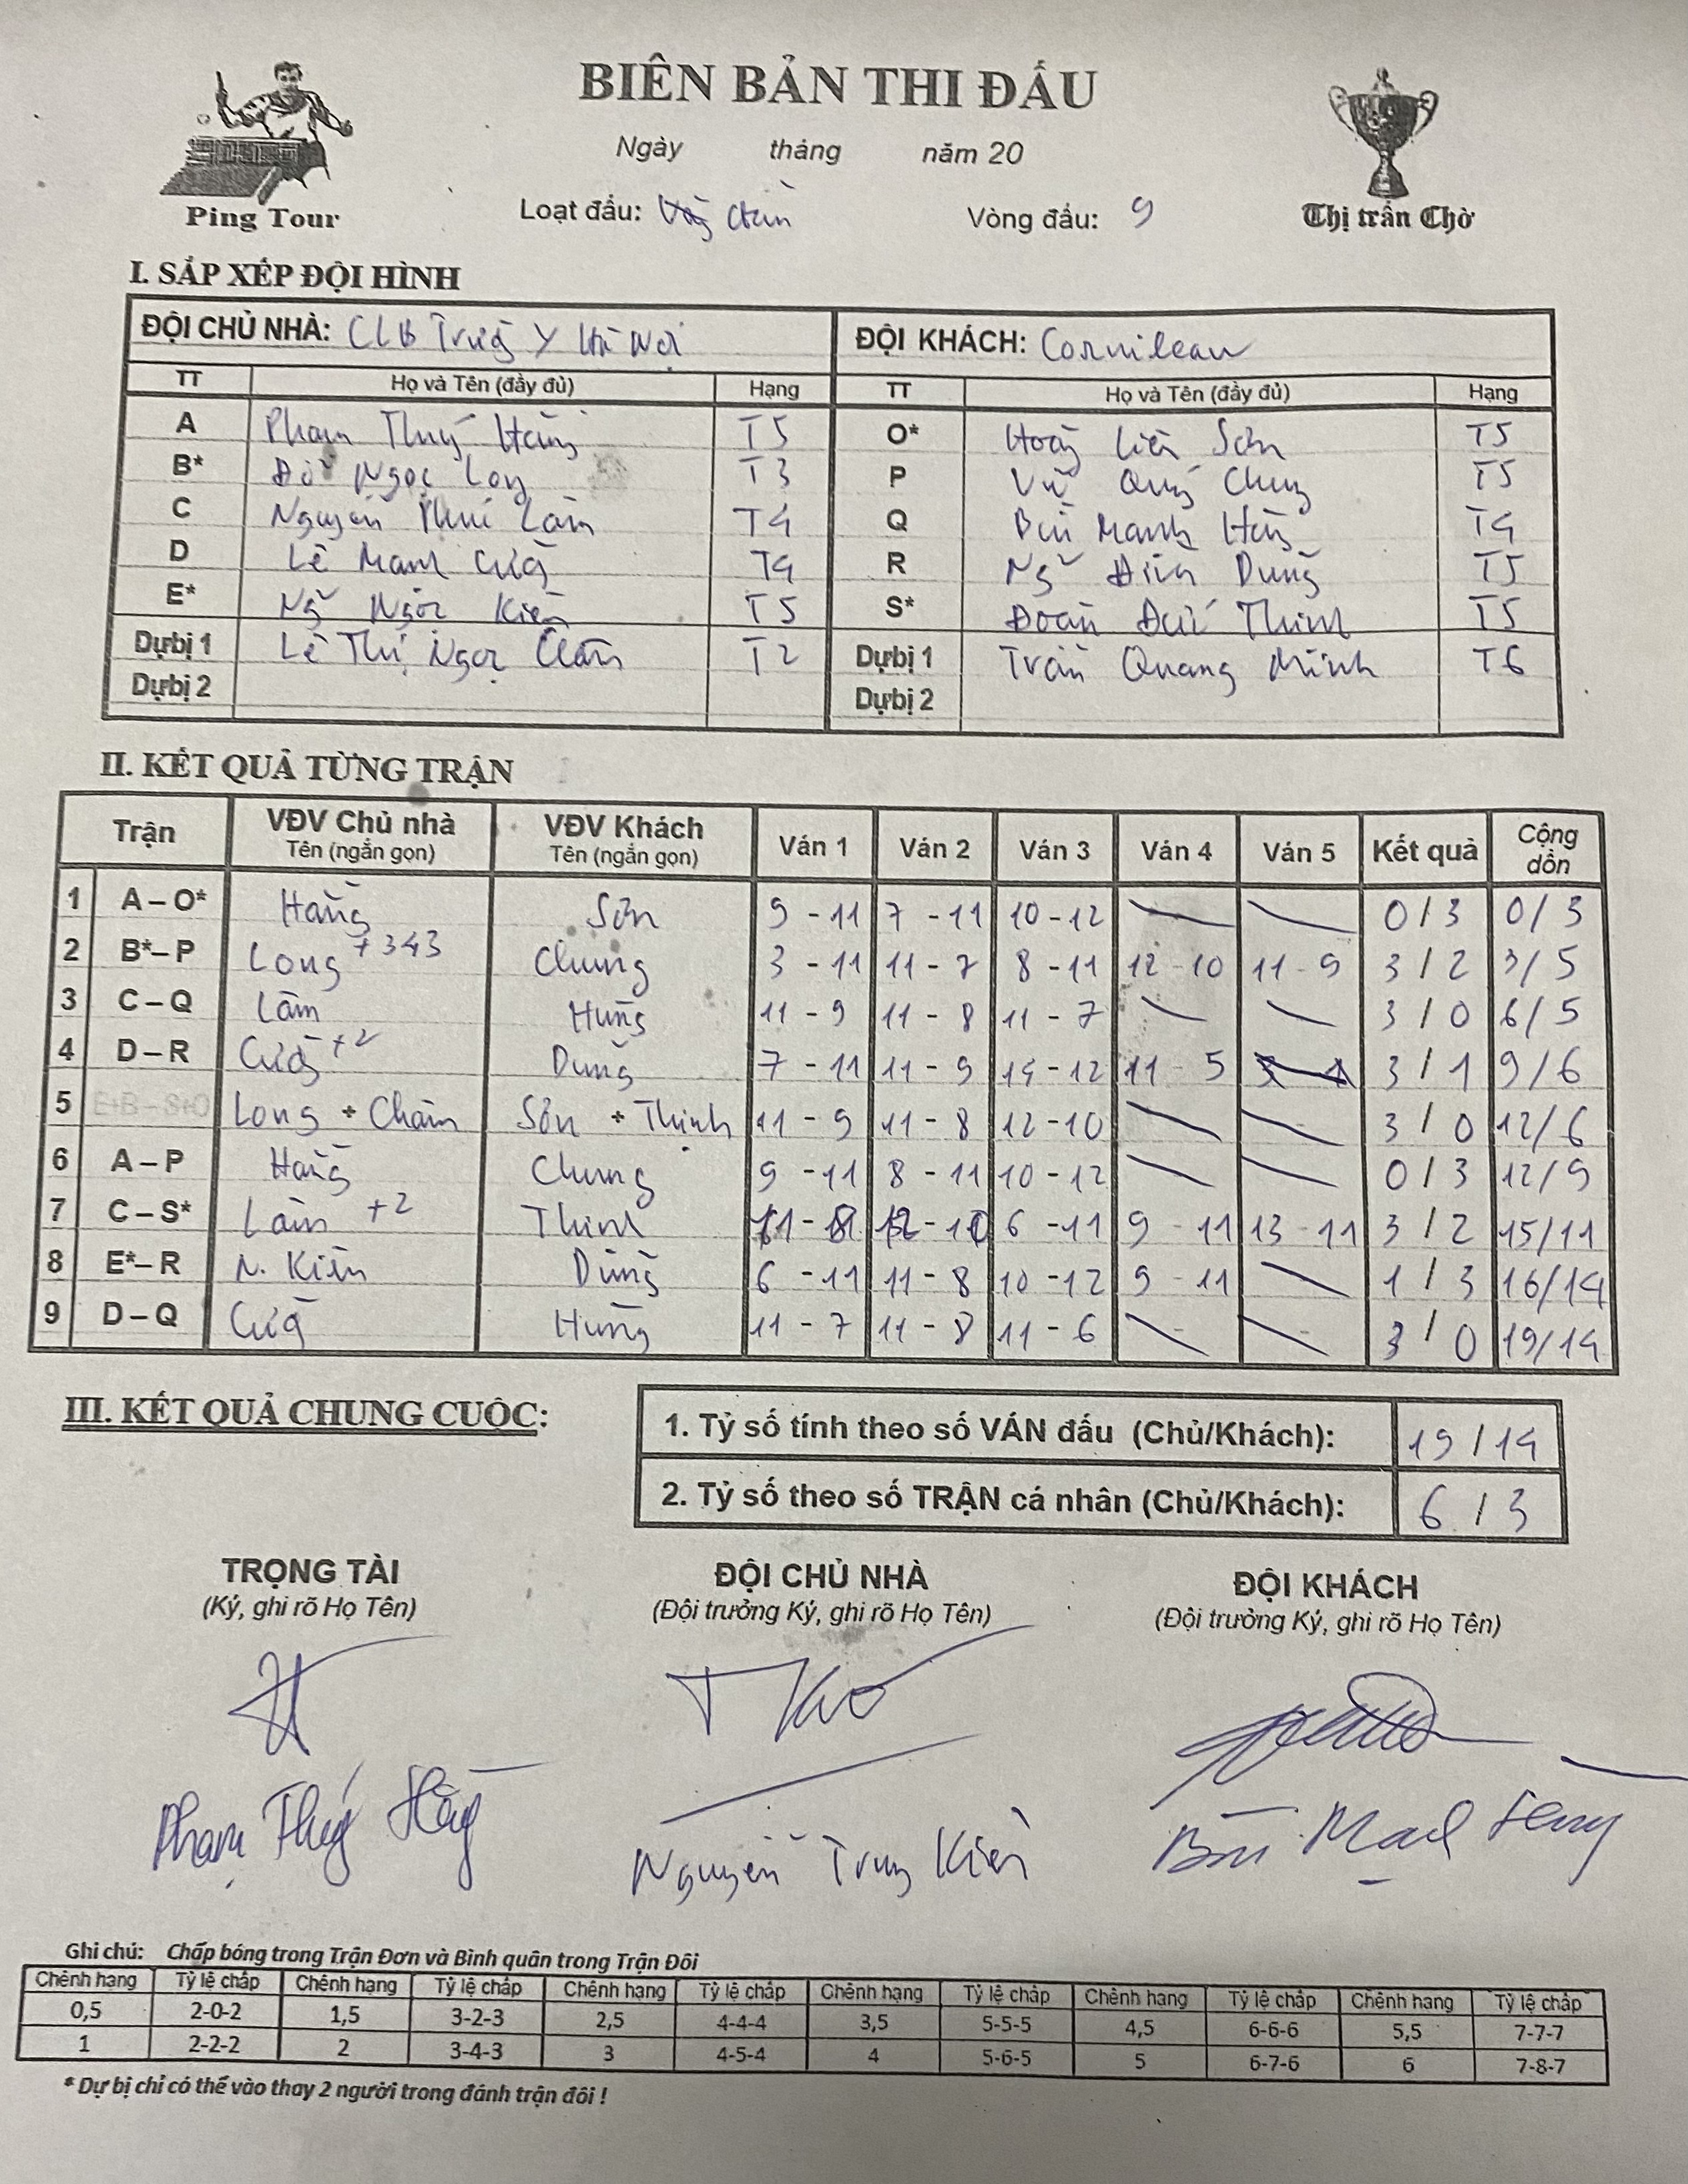 BIÊN BẢN THI ĐẤU
Ngày tháng năm 20
Ping Tour
Loạt đấu:
Vòng đấu: 9
Thị trấn Chờ
I. SẮP XẾP ĐỘI HÌNH
ĐỘI CHỦ NHÀ: CLB Trường Y Hà Nội ĐỘI KHÁCH: Cornileau
TT Họ và Tên (đầy đủ) Hạng TT Họ và Tên (đầy đủ) Hạng
A Phạm Thuý Hằng T5 O* Hoàng Liên Sơn T5
B* Đỗ Ngọc Long T3 P Vũ Quý Chung T5
C Nguyễn Phú Lâm T4 Q Bùi Mạnh Hùng T4
D Lê Mạnh Cường T4 R Ng~ Dũng T5
E* Ng~ Ngọc Kiên T5 S* Đoàn Đức Thịnh T5
Dự bị 1 Lê Thị Ngọc T2 Dự bị 1 Trần Quang Minh T6
Dự bị 2 Dự bị 2
II. KẾT QUẢ TỪNG TRẬN
Trận VĐV Chủ nhà Tên (ngắn gọn) VĐV Khách Tên (ngắn gọn) Ván 1 Ván 2 Ván 3 Ván 4 Ván 5 Kết quả Cộng dồn
1 A – O* Hằng Sơn 9 - 11 7 - 11 10 - 12 0 / 3 0 / 3
2 B* – P Long +343 Chung 3 - 11 11 - 7 8 - 11 12 - 10 11 - 9 3 / 2 3 / 5
3 C – Q Lâm Hùng 11 - 9 11 - 8 11 - 7 3 / 0 6 / 5
4 D – R Cường +2 Dũng 7 - 11 11 - 9 14 - 12 11 - 5 3 / 1 9 / 6
5 E+B – S+O Long + Châm Sơn + Thịnh 11 - 9 11 - 8 12 - 10 3 / 0 12 / 6
6 A – P Hằng Chung 9 - 11 8 - 11 10 - 12 0 / 3 12 / 9
7 C – S* Lâm +2 Thịnh 11 - 8 12 - 10 6 - 11 9 - 11 13 - 11 3 / 2 15 / 11
8 E* – R N. Kiên Dũng 6 - 11 11 - 8 10 - 12 9 - 11 1 / 3 16 / 14
9 D – Q Cường Hùng 11 - 7 11 - 8 11 - 6 3 / 0 19 / 14
III. KẾT QUẢ CHUNG CUỘC:
1. Tỷ số tính theo số VÁN đấu (Chủ/Khách): 19 / 14
2. Tỷ số theo số TRẬN cá nhân (Chủ/Khách): 6 / 3
TRỌNG TÀI ĐỘI CHỦ NHÀ ĐỘI KHÁCH
(Ký, ghi rõ Họ Tên) (Đội trưởng Ký, ghi rõ Họ Tên) (Đội trưởng Ký, ghi rõ Họ Tên)
Phạm Thuý Hằng Nguyễn Trung Kiên Bùi Mạnh Hùng
Ghi chú: Chấp bóng trong Trận Đơn và Bình quân trong Trận Đôi
Chênh hạng Tỷ lệ chấp Chênh hạng Tỷ lệ chấp Chênh hạng Tỷ lệ chấp Chênh hạng Tỷ lệ chấp Chênh hạng Tỷ lệ chấp Chênh hạng Tỷ lệ chấp
0,5 2-0-2 1,5 3-2-3 2,5 4-4-4 3,5 5-5-5 4,5 6-6-6 5,5 7-7-7
1 2-2-2 2 3-4-3 3 4-5-4 4 5-6-5 5 6-7-6 6 7-8-7
* Dự bị chỉ có thể vào thay 2 người trong đánh trận đôi !